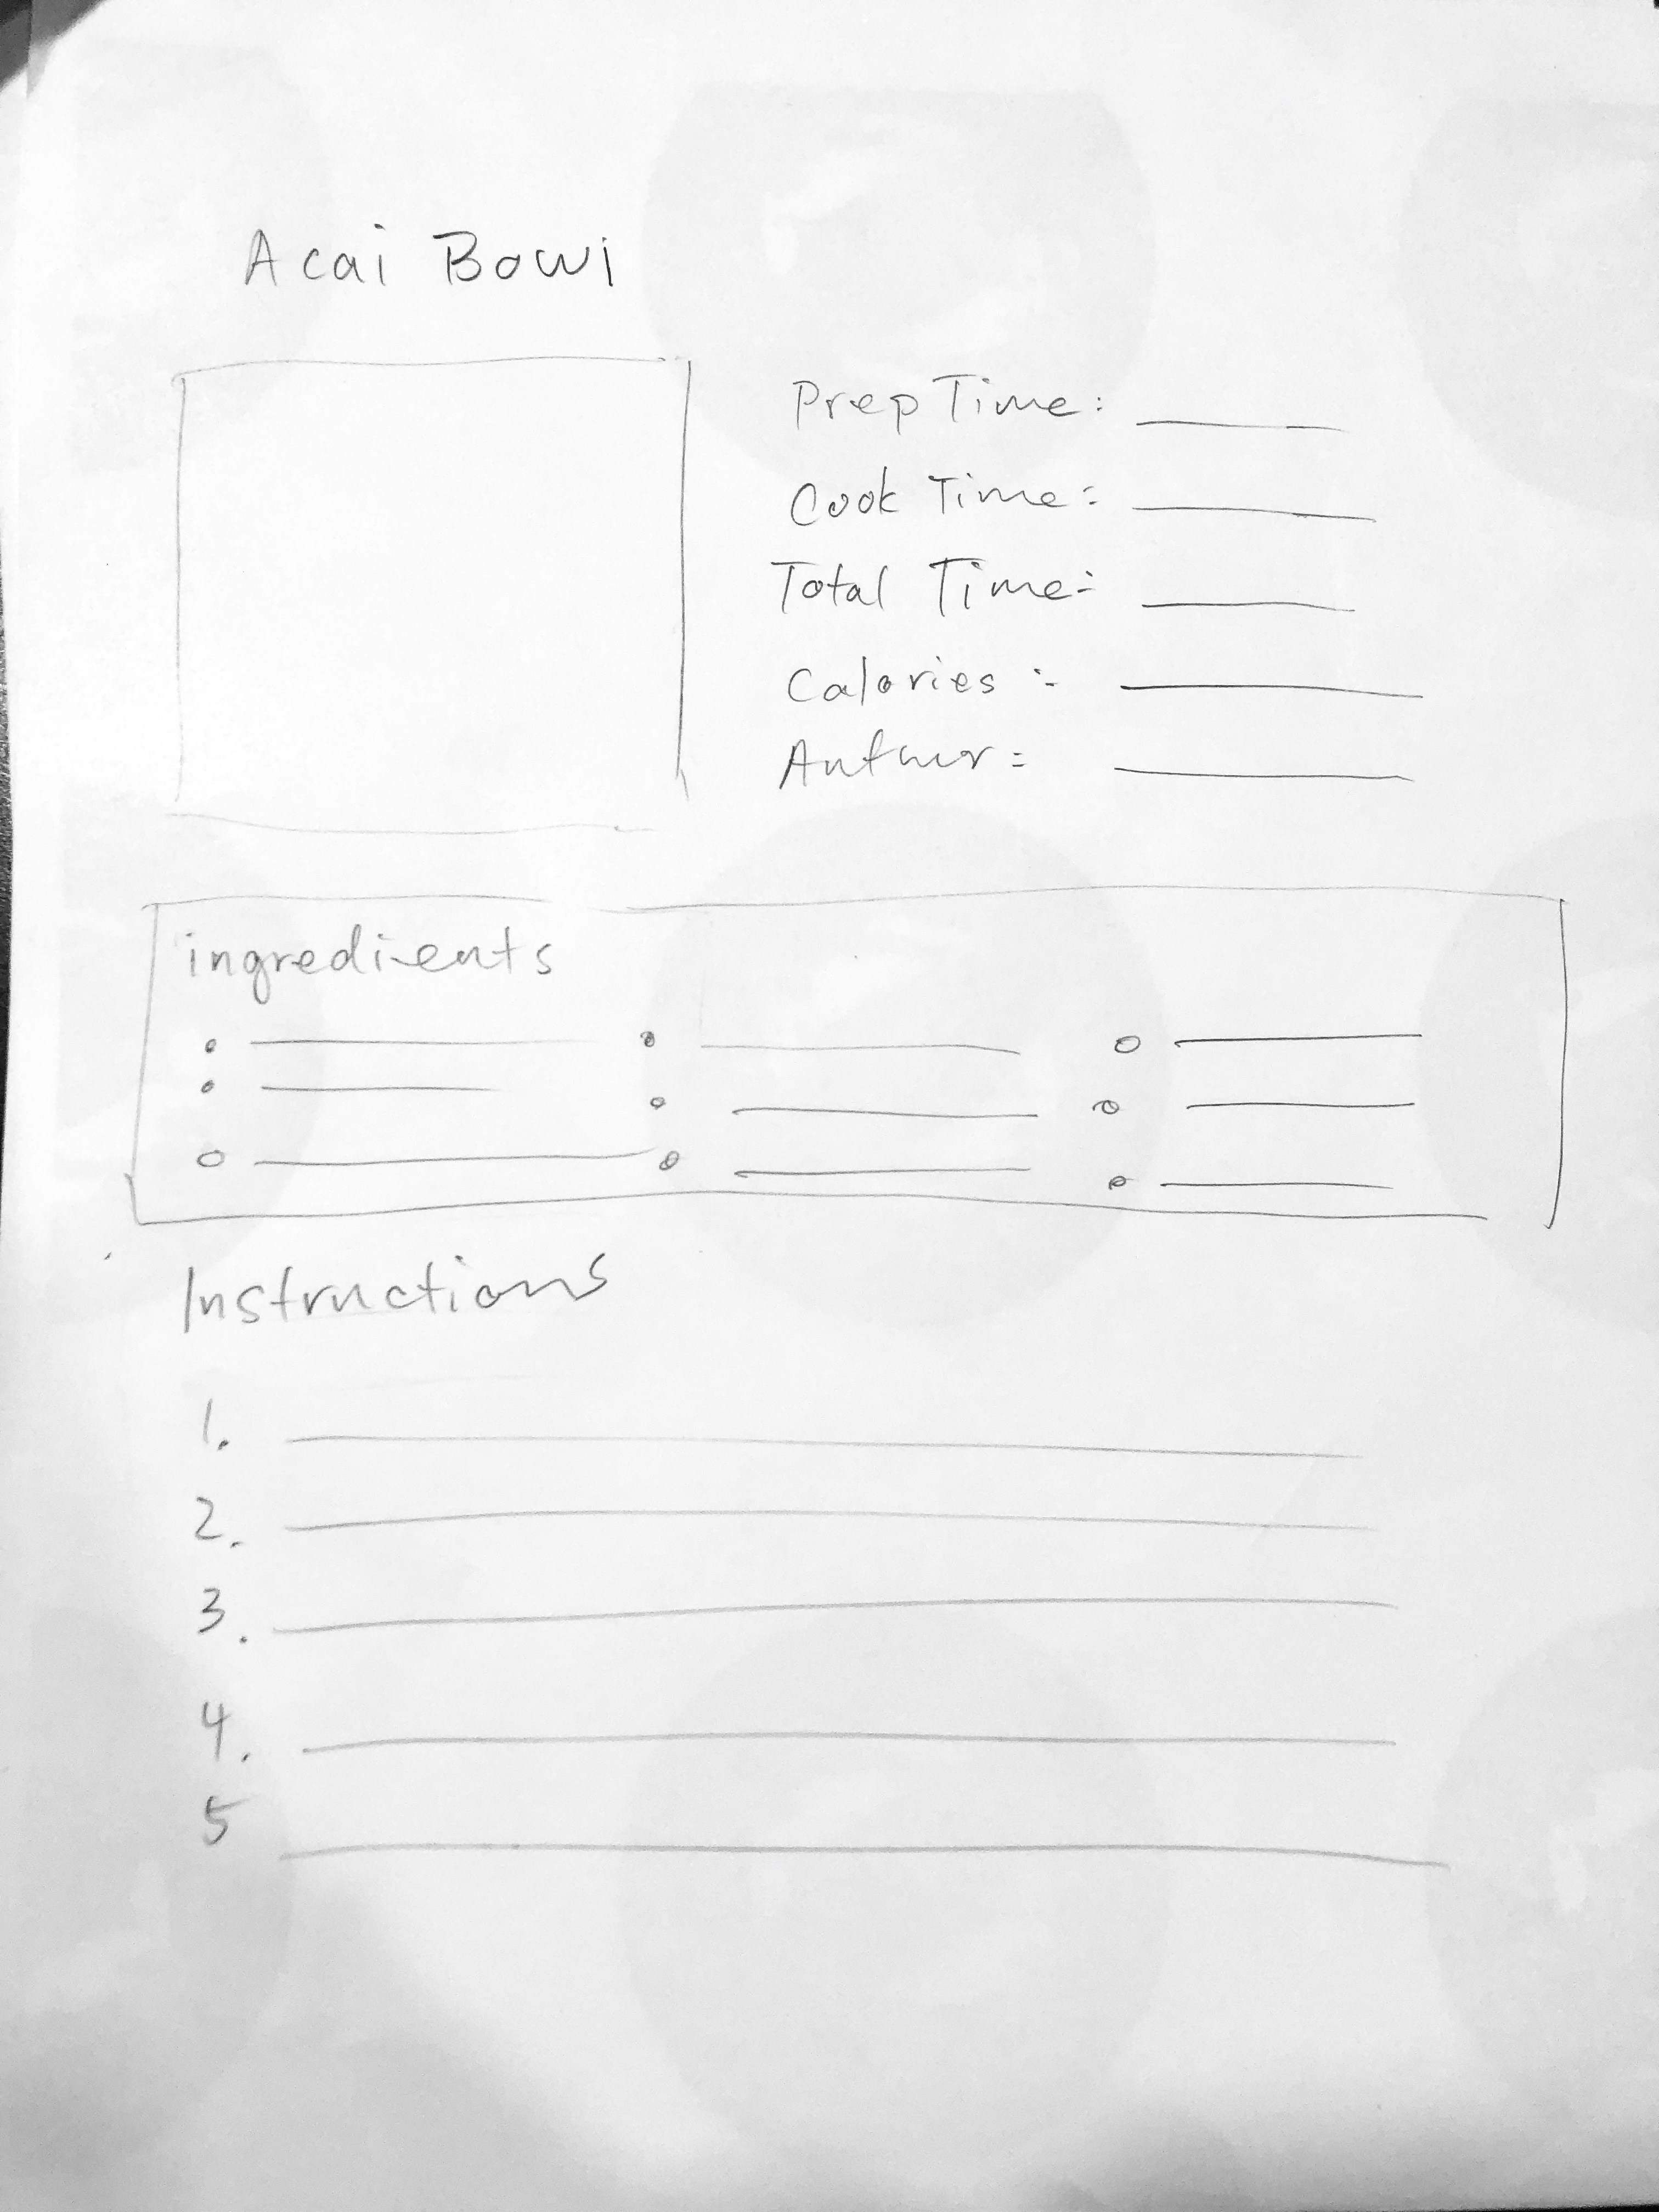 Acai Bowl
Prep Time:
Cook Time:
Total Time:
Calories:
Author:
ingredients
Instructions
1.
2.
3.
4.
5